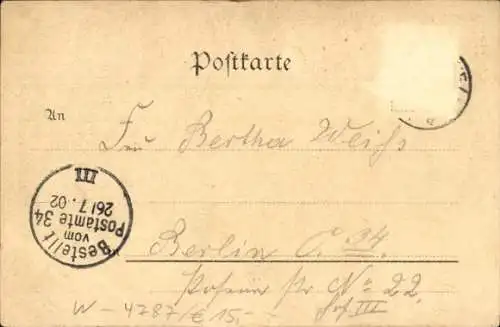 Postkarte
An
Frau Bertha Weiß
Bestellt
vom
Postamte 34
26/7.02
III
Berlin C. 34
Posener Str No 22
Hof III
W-4787/€15,-